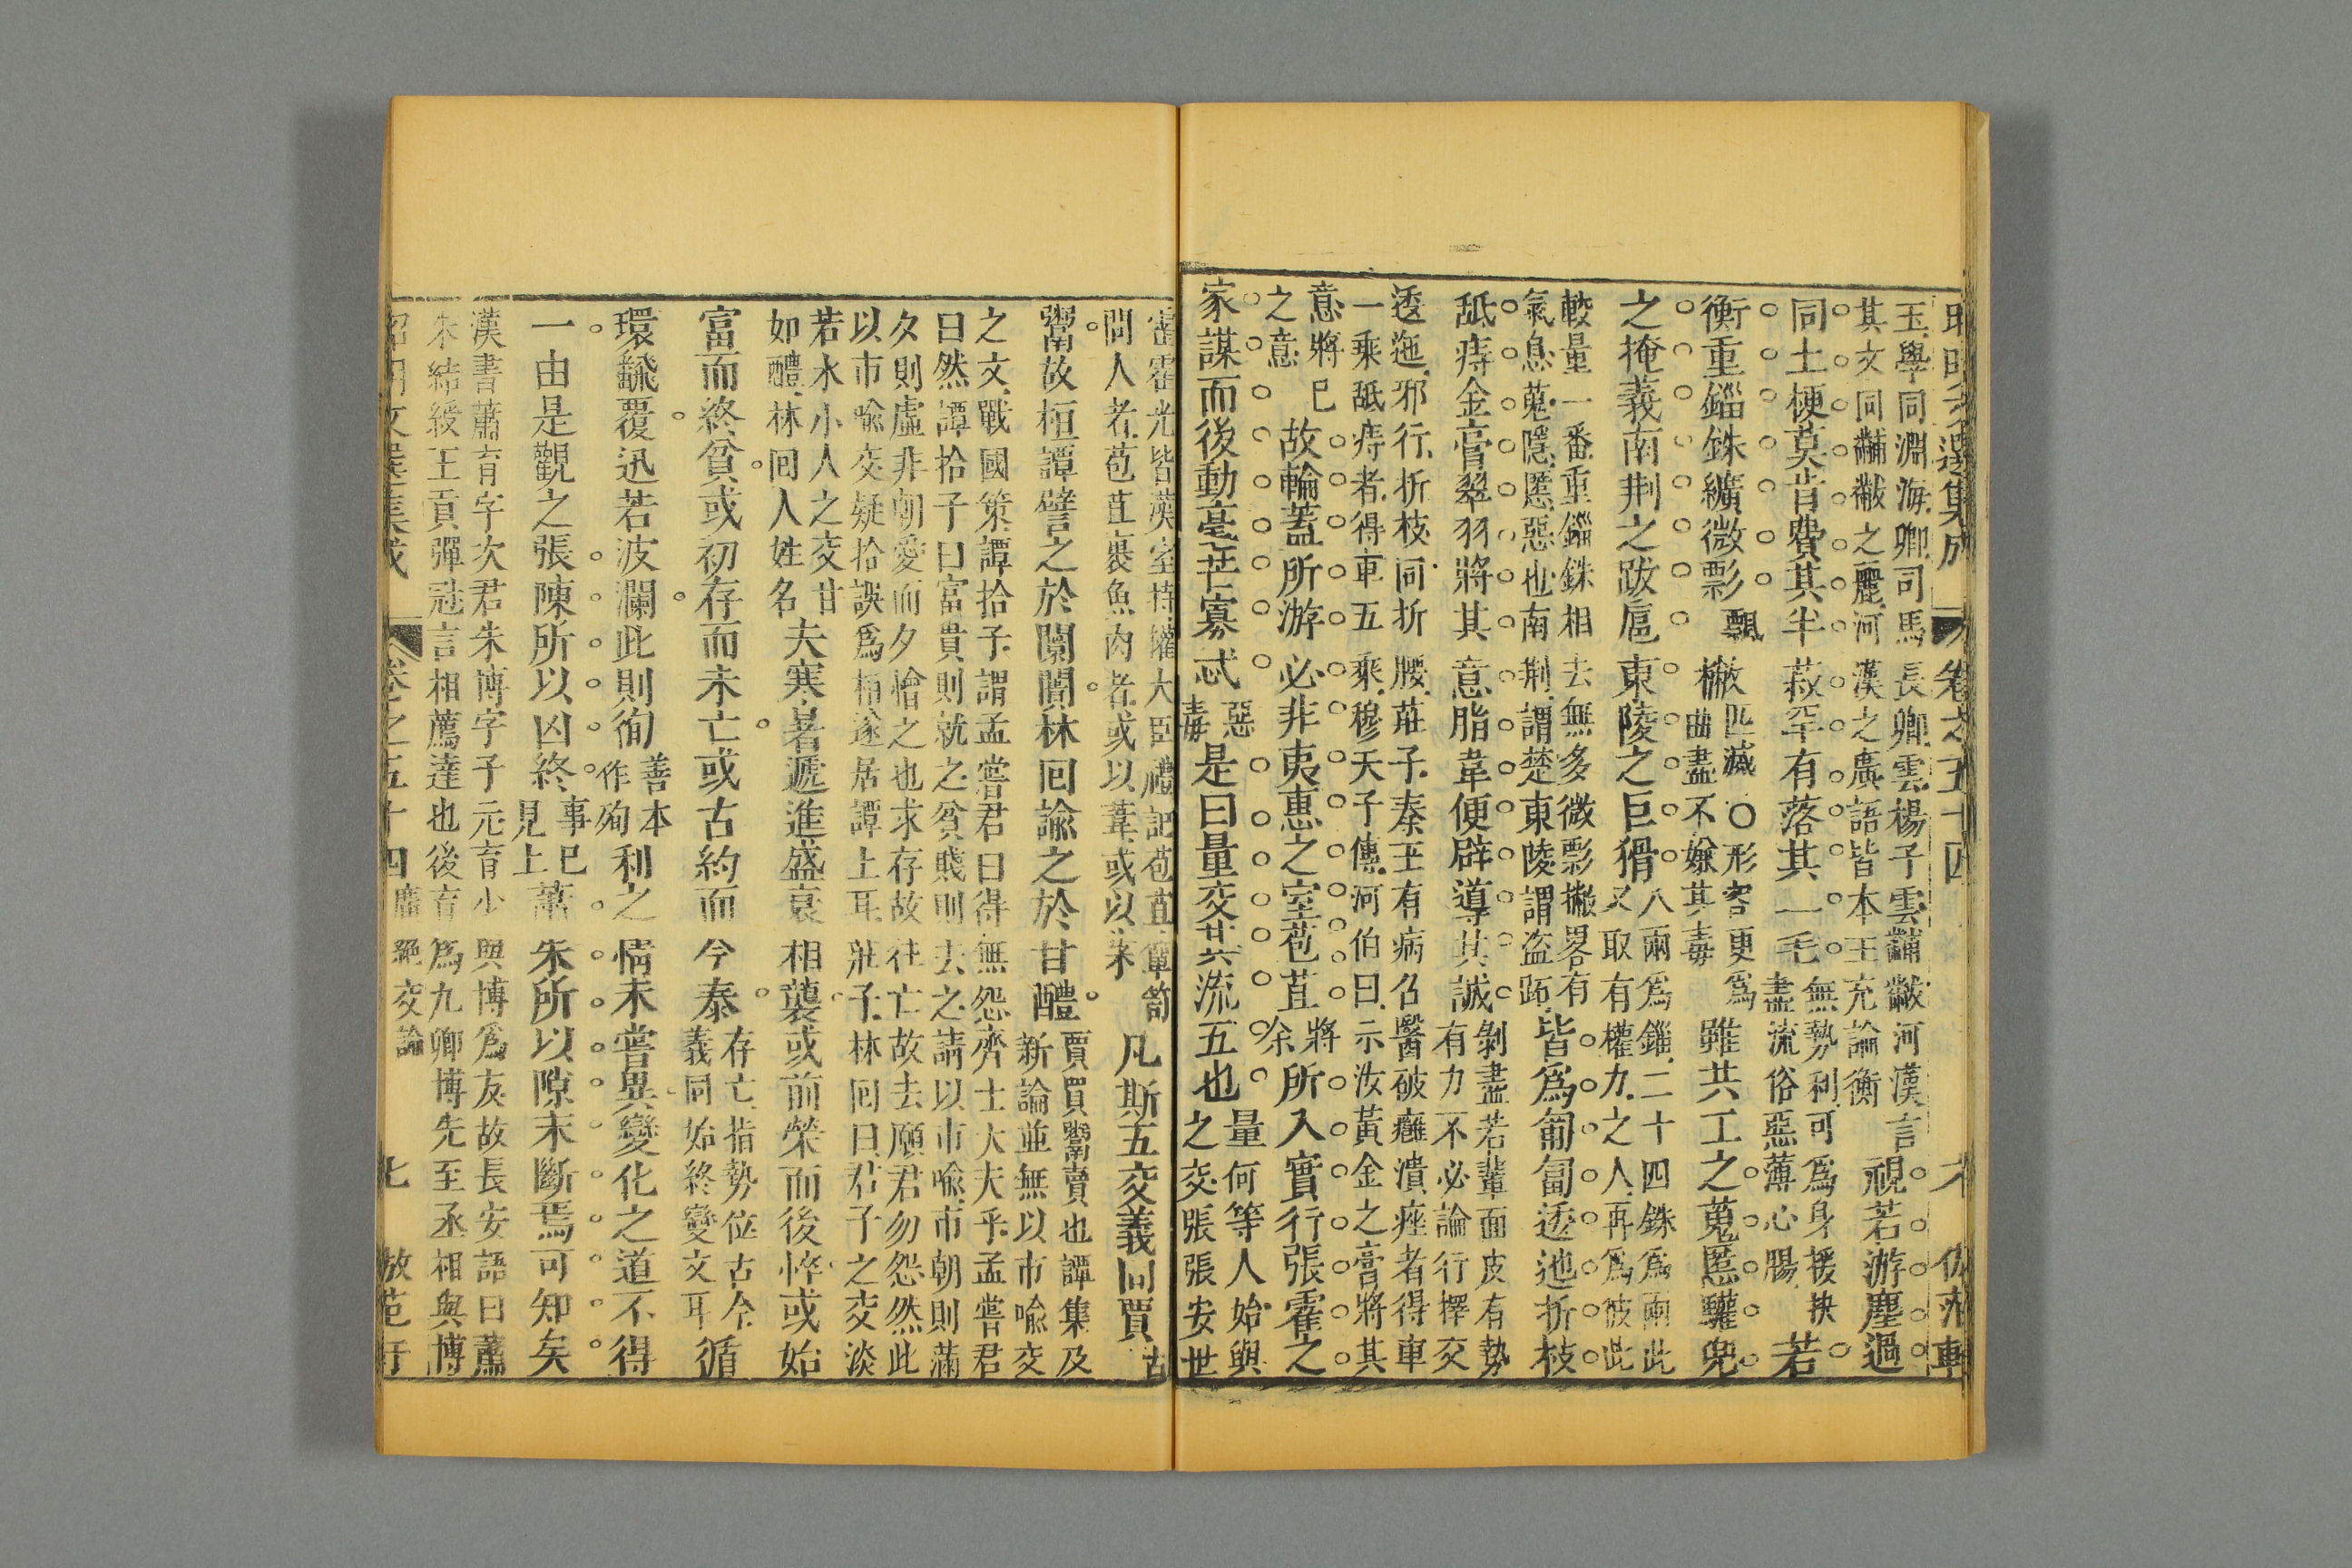 昭明文選集成 卷之五十四 六 仿范軒
玉學同淵海卿司馬長卿雲楊子雲黼黻河漢言
其文同黼黻之麗河漢之廣語皆本王充論衡
視若游塵過
同土梗莫肯費其半菽罕有落其一毛
無勢利可為身援抉
盡流俗惡薄心腸
若
衡重錙銖纊微影飄撇
匹滅○形容更為
曲盡不嫌其毒
雖共工之蒐慝驩兜
之掩義南荆之跋扈東陵之巨猾
八兩為錙二十四銖為兩此
又取有權力之人再為彼此
較量一番重錙銖相去無多微影撇畧有
氣息蒐隱慝惡也南荆謂楚東陵謂盜跖
皆為匍匐逶迤折枝
舐痔金膏翠羽將其意脂韋便辟導其誠
剝盡若輩面皮有勢
有力不必論行擇交
逶迤邪行折枝同折腰莊子秦王有病召醫破癰潰痤者得車
一乘舐痔者得車五乘穆天子傳河伯曰示汝黃金之膏將其
意將巳
之意
故輪蓋所游必非夷惠之室苞苴所入實行張霍之
將
余
家謀而後動毫芒寡忒
惡
毒
是曰量交其流五也
量何等人始與
之交張張安世
霍霍光皆漢室持權大臣禮記苞苴簞笥
問人者苞苴裹魚肉者或以葦或以茅
凡斯五交義同賈
古
鬻故桓譚譬之於闤闠林回諭之於甘醴
賈買鬻賣也譚集及
新論並無以市喻交
之文戰國策譚拾子謂孟嘗君曰得無怨齊士大夫乎孟嘗君
曰然譚拾子曰富貴則就之貧賤則去之請以市喻市朝則滿
夕則虛非朝愛而夕憎之也求存故往亡故去願君勿怨然此
以市喻交疑拾誤為桓遂居譚上耳莊子林回曰君子之交淡
若水小人之交甘
如醴林回人姓名
夫寒暑遞進盛衰相襲或前榮而後悴或始
富而終貧或初存而末亡或古約而今泰
存亡指勢位古今
義同始終變文耳
循
環翻覆迅若波瀾此則徇
善本
作殉
利之情未嘗異變化之道不得
一由是觀之張陳所以凶終
事已
見上
蕭朱所以隙末斷焉可知矣
漢書蕭育字次君朱博字子元育少與博為友故長安語曰蕭
朱結綬王貢彈冠言相薦達也後育為九卿博先至丞相與博
昭明文選集成 卷之五十四 廣絕交論 七 放范軒